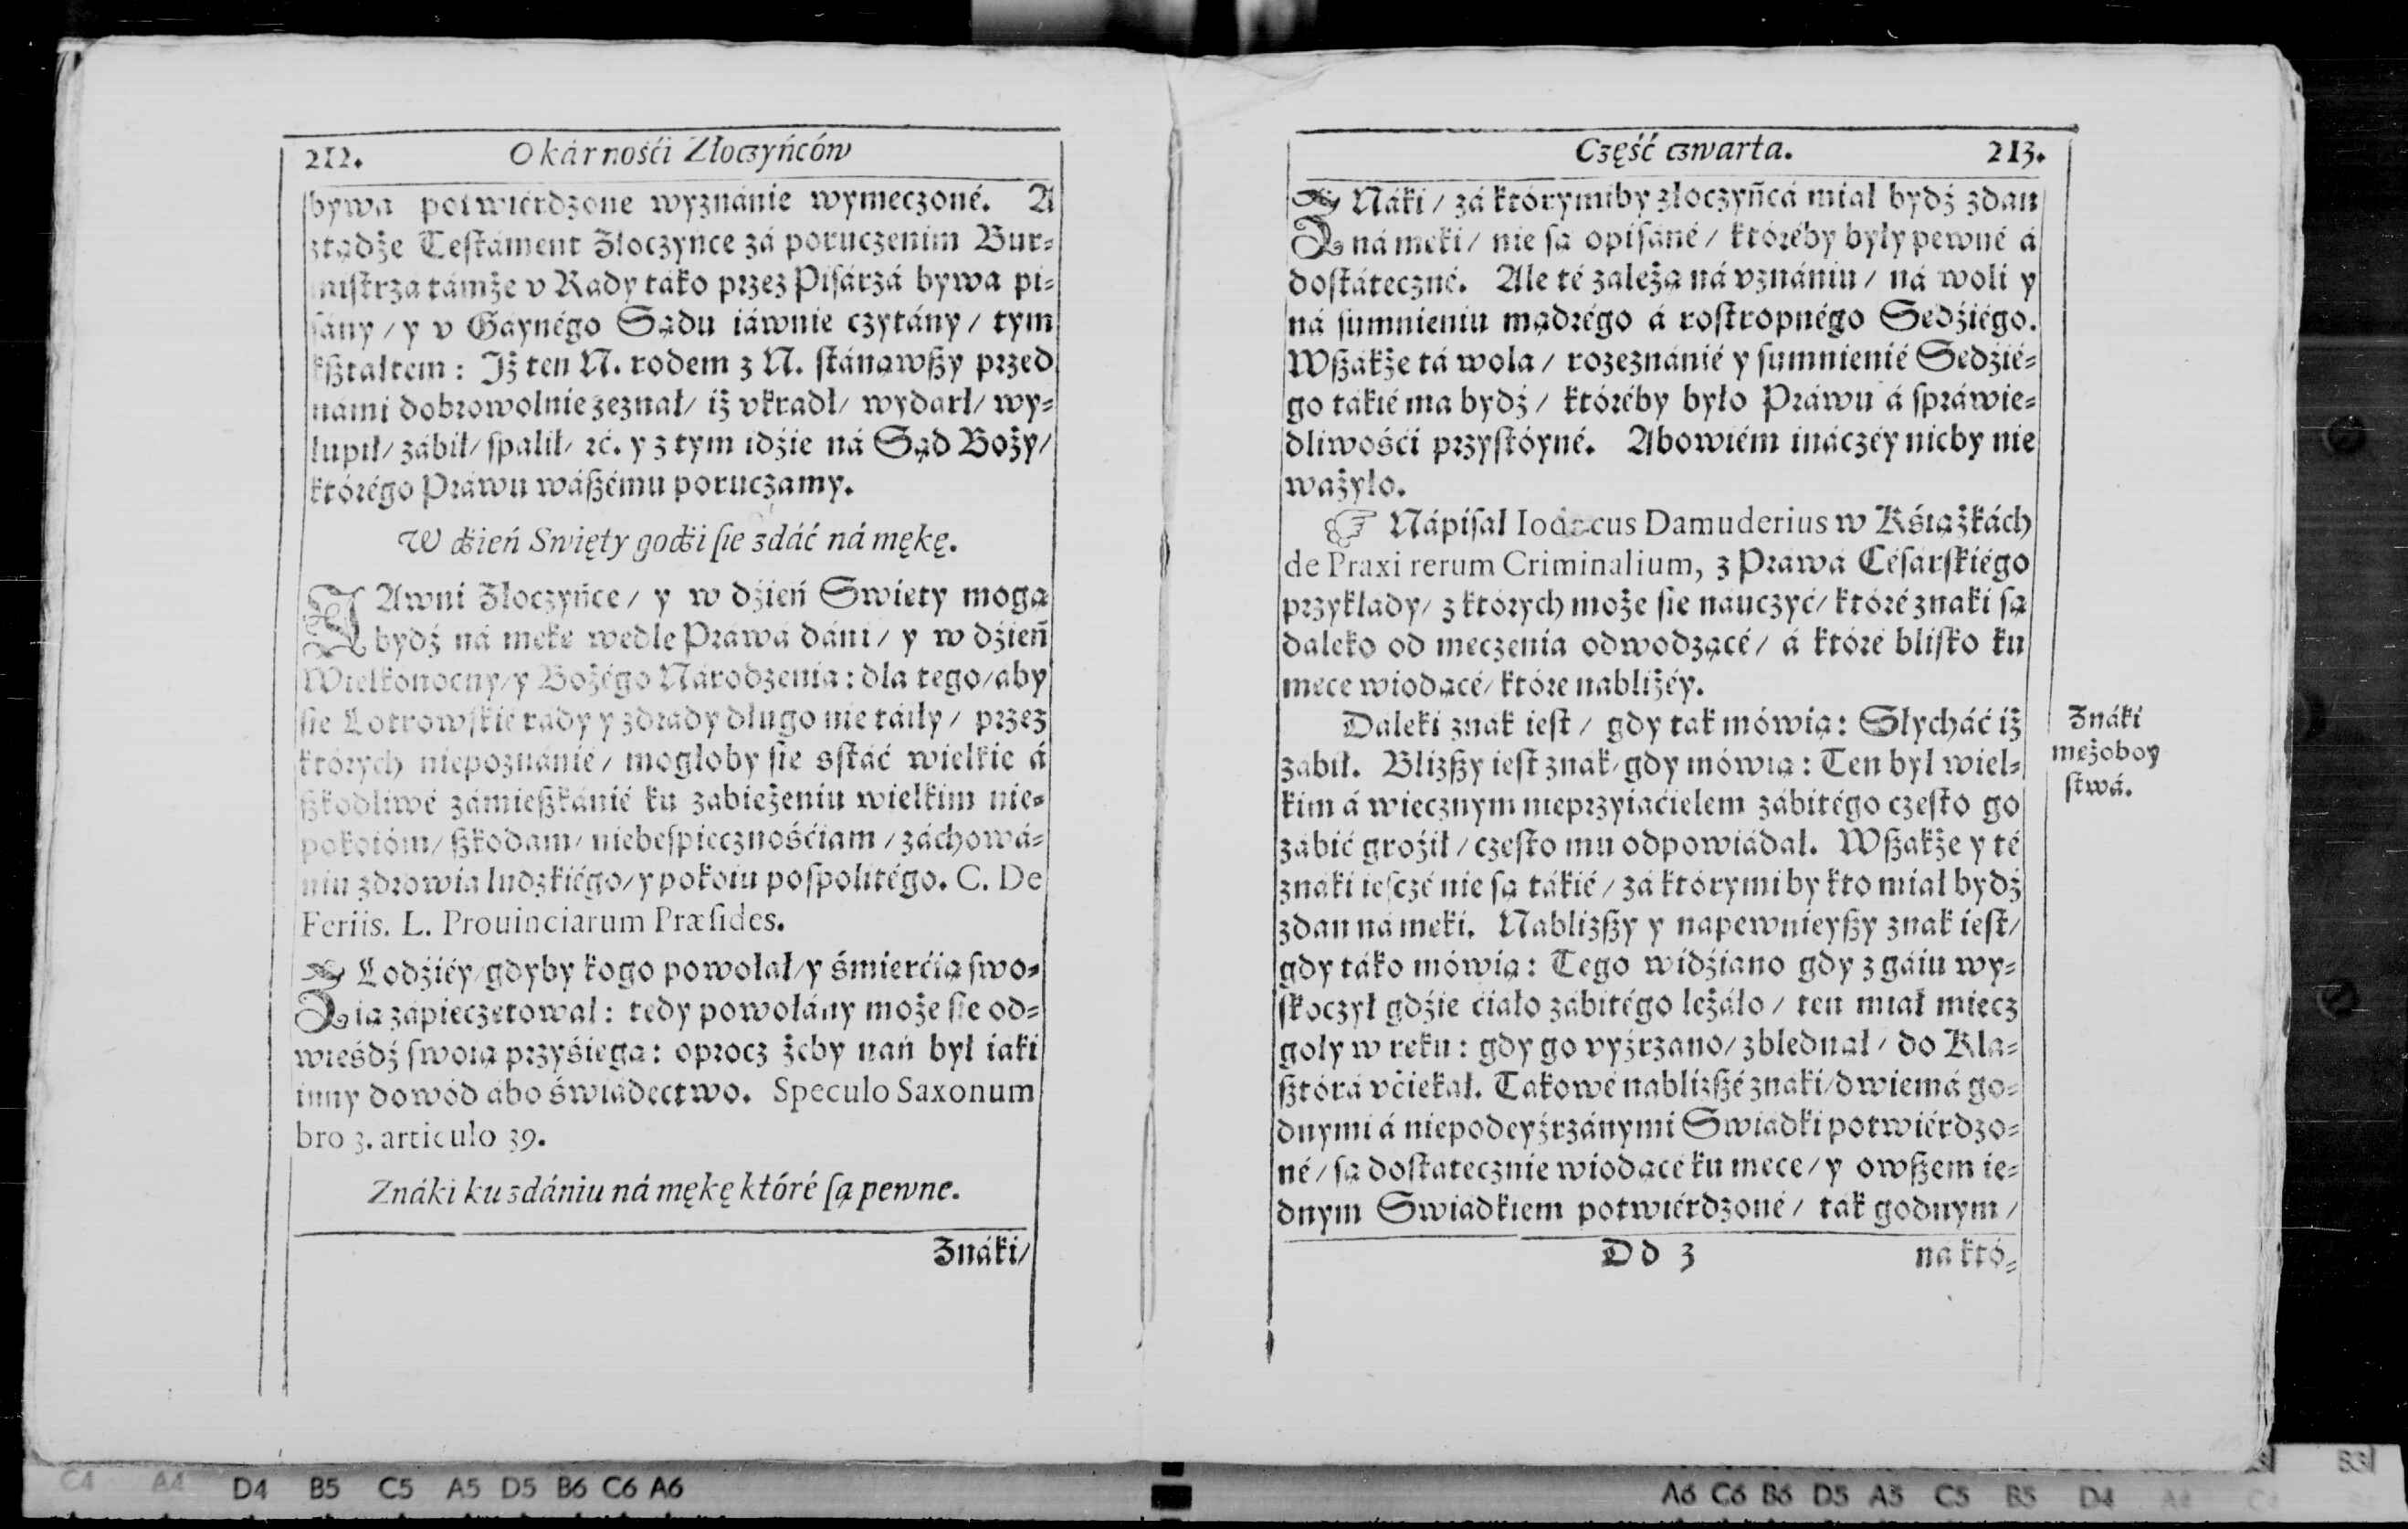 212. O kárnośći Złoczyńców
bywa potwiérdzone wyznánie wymeczoné. A
ztądże Testáment Złoczyńce zá poruczenim Bur-
mistrza támże v Rady táko przez Pisárzá bywa pi-
sány / y v Gáynégo Sądu iáwnie czytány / tym
kſztałtem : Iż ten N. rodem z N. stánąwſzy przed
námi dobrowolnie zeznał / iż vkradł / wydarł / wy-
łupił / zábił / spalił / ꝛć. y z tym idźie ná Sąd Boży /
którégo Práwu wáſzému poruczamy.
W dźień Swięty godźi ſie zdáć ná mękę.
IAwni Złoczyńce / y w dźień Swiety mogą
bydź ná meke wedle Práwá dáni / y w dźień
Wielkonocny / y Bożégo Národzenia : dla tego / aby
sie Lotrowskié rády y zdrady długo nie táiły / przez
których niepoznánié / mogłoby sie sstáć wielkie á
ſzkodliwé zámieſzkánié ku zabieżeniu wielkim nie-
pokoióm / ſzkodam / niebespiecznośćiam / záchowá-
niu zdrowia ludzkiégo / y pokoiu pospolitégo. C. De
Feriis. L. Prouinciarum Præſides.
ZLodźiéy / gdyby kogo powołał / y śmierćią swo-
ią zápieczetował : tedy powołány może sie od-
wieśdź swoią przyśiegą : oprocz żeby nań był iáki
inny dowód ábo świádectwo. Speculo Saxonum
bro 3. articulo 39.
Znáki ku zdániu ná mękę któré ſą pewne.
Znáki /
Część czwarta. 213.
ZNáki / zá którymiby złoczyńcá miał bydź zdan
ná meki / nie są opisáné / któréby były pewné á
dostáteczné. Ale té zależą ná vznániu / ná woli y
ná sumnieniu mądrégo á rostropnégo Sedźiégo.
Wſzákże tá wola / rozeznánié y sumnienié Sedzié-
go tákié ma bydź / któréby było Práwu á spráwie-
dliwośći przystóyné. Abowiém ináczéy nicby nie
ważyło.
☞ Nápisał Iodocus Damuderius w Kśiążkách
de Praxi rerum Criminalium, z Práwá Césárskiégo
przykłady / z których może sie náuczyć / któré znáki są
dáleko od meczenia odwodzącé / á któré blisko ku
mece wiodącé / któré nabliżéy.
Daleki znák iest / gdy ták mówią : Słycháć iż
zábił. Bliżſzy iest znák / gdy mówią : Ten był wiel-
kim á wiecznym nieprzyiaćielem zábitégo czesto go
zábić groźił / czesto mu odpowiádał. Wſzakże y té
znáki ieſczé nie są tákié / zá którymi by kto miał bydź
zdan ná meki. Nabliżſzy y napewnieyſzy znák iest /
gdy táko mówią : Tego widźiano gdy z gáiu wy-
skoczył gdźie ćiáło zábitégo leżáło / ten miał miecz
goły w reku : gdy go vyźrzano / zblednął / do Kla-
ſztórá vćiekał. Tákowé nabliżſzé znáki / dwiemá go-
dnymi á niepodeyźrzánymi Swiádki potwiérdzo-
né / są dostátecznie wiodącé ku mece / y owſzem ie-
dnym Swiádkiem potwiérdzoné / ták godnym /
Znáki
meżoboy
stwá.
D d 3 na któ-
C4 A4 D4 B5 C5 A5 D5 B6 C6 A6
A6 C6 B6 D5 A5 C5 B5 D4 A4 C4 B3